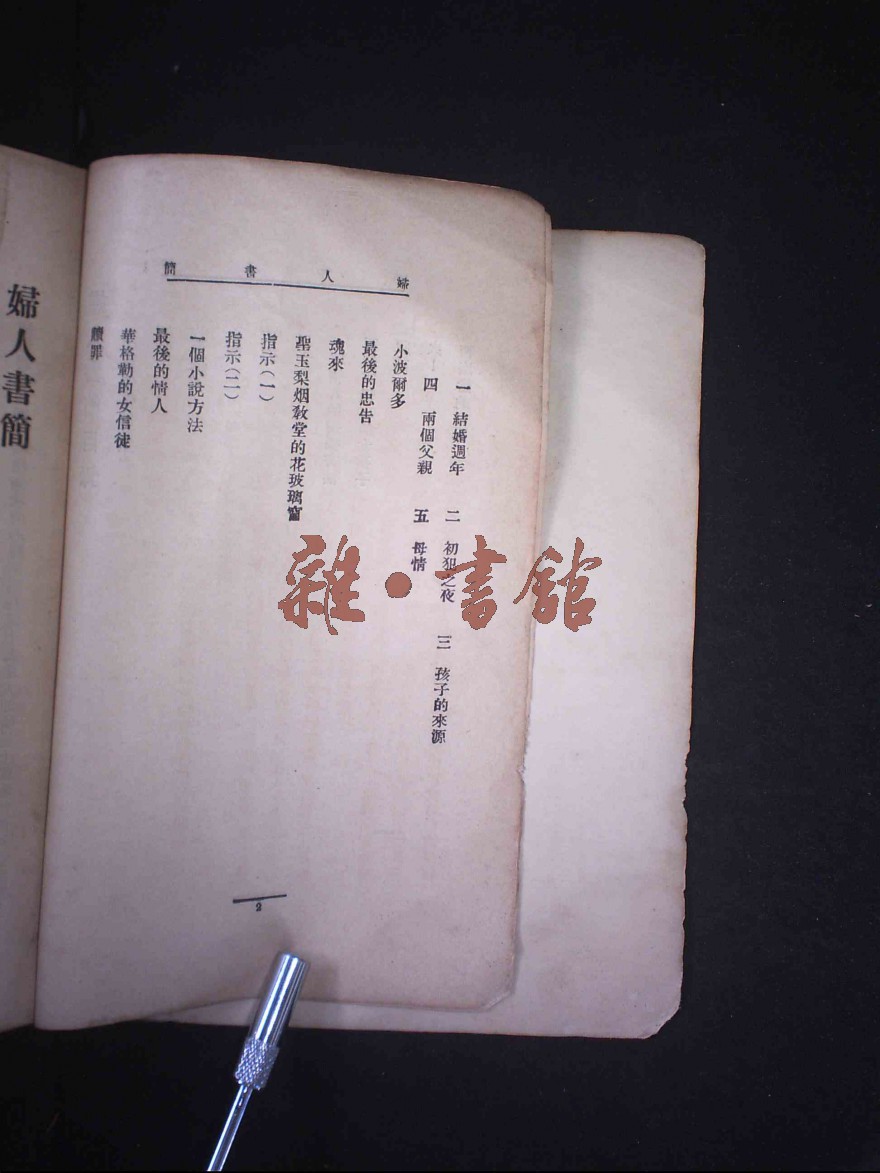 婦人書簡
一 結婚週年 二 初犯之夜 三 孩子的來源
四 兩個父親 五 母情
小波爾多
最後的忠告
魂來
聖玉梨烟教堂的花玻璃窗
指示(一)
指示(二)
一個小說方法
最後的情人
華格勒的女信徒
贖罪
2
婦人書簡
雜·書館